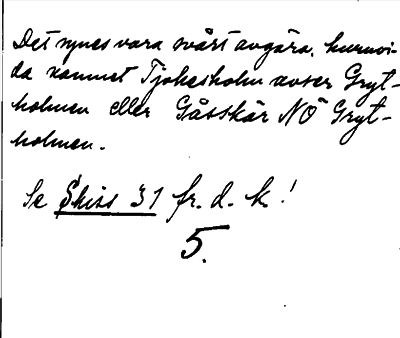 Det synes vara svårt avgöra, huruvi-
da namnet Tjokesholm avser Gryt-
holmen eller Gåsskär NÖ Gryt-
holmen.
Se Skiss 31 fr. d. k.!
5.